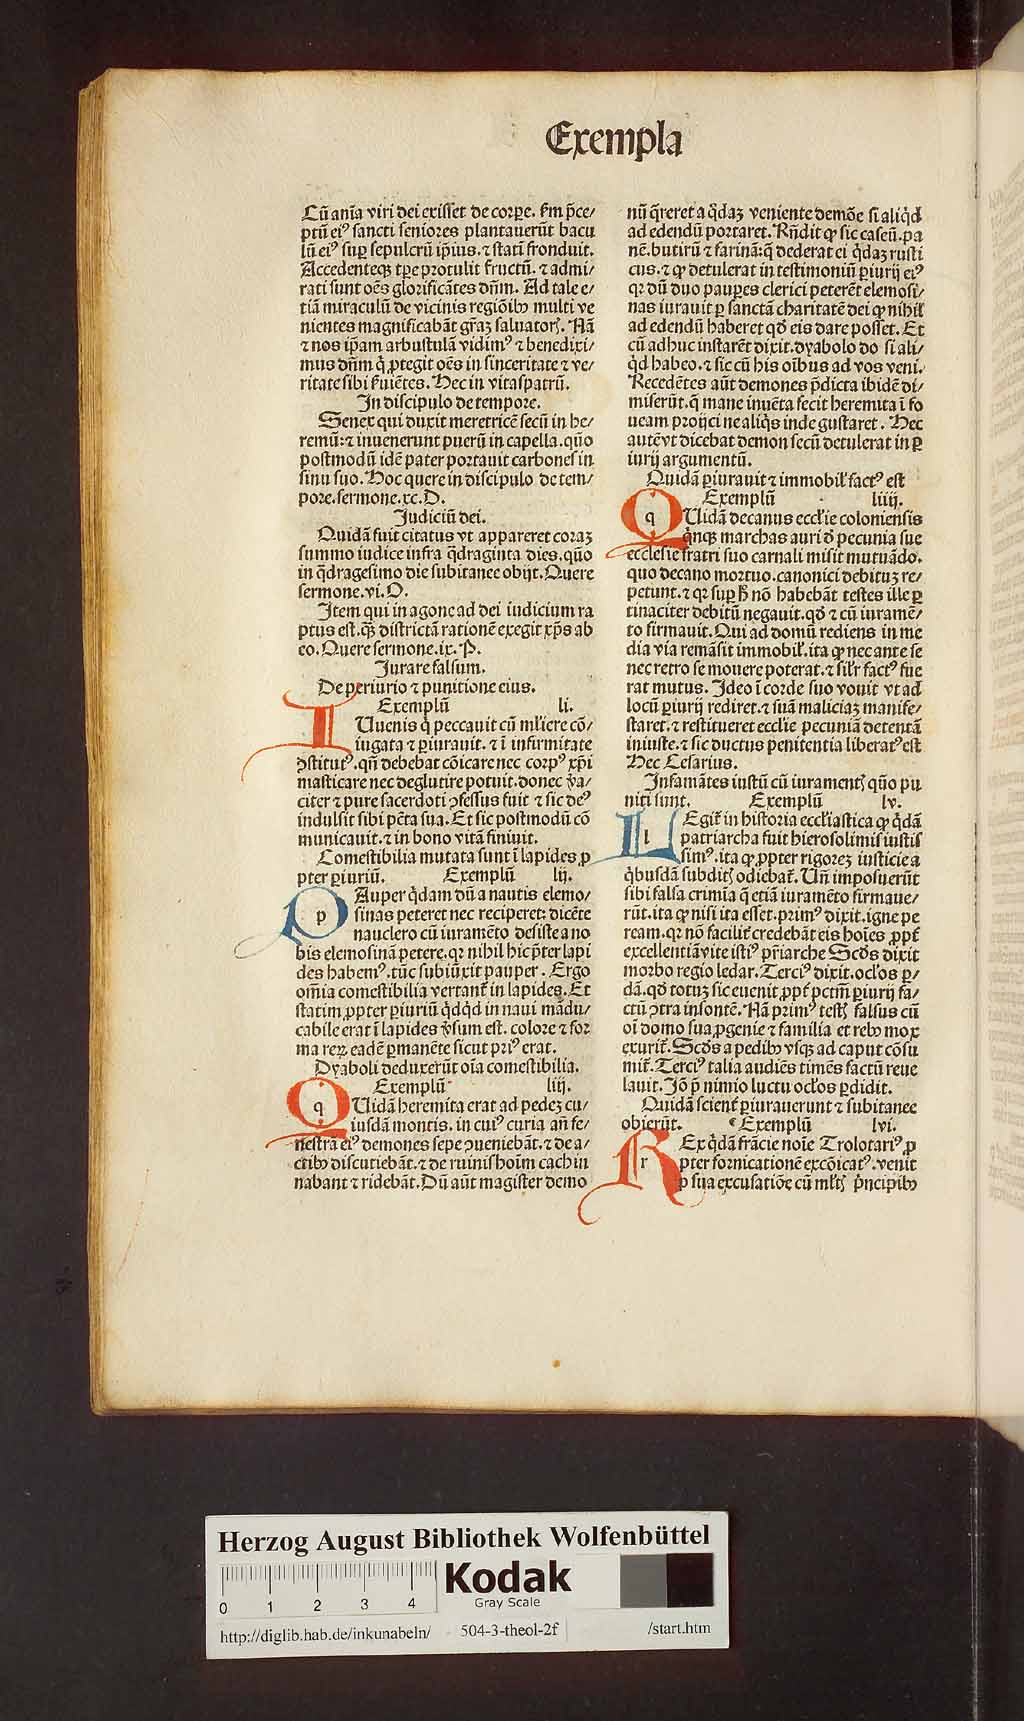 Exempla
Cū aīa viri dei exisset de corpe. ẜm p̄ce/
ptū ei⁹ sancti seniores plantauerūt bacu
lū ei⁹ sup sepulcrū ip̄ius. ⁊ statī fronduit.
Accedenteqꝫ tpe protulit fructū. ⁊ admi/
rati sunt oēs glorificātes dn̄m. Ad tale e/
tiā miraculū de vicinis regiōibꝰ multi ve
nientes magnificabāt gr̄aꝫ saluatorꝭ. Nā
⁊ nos ip̄am arbustulā vidim⁹ ⁊ benedixi/
mus dn̄m q̇ ꝓtegit oēs in sinceritate ⁊ ve/
ritate sibi ẜuiētes. Hec in vitaspatrū.
In discipulo de tempore.
Senex qui duxit meretricē secū in he/
remū: ⁊ inuenerunt puerū in capella. quō
postmodū idē pater portauit carbones in
sinu suo. Hoc quere in discipulo de tem/
pore. sermone. xc. D.
Judiciū dei.
Quidā fuit citatus vt appareret coraꝫ
summo iudice infra q̄draginta dies. quō
in q̄dragesimo die subitanee obijt. Quere
sermone. vi. O.
Item qui in agone ad dei iudicium ra
ptus est. qꝫ districtā rationē exegit xp̄s ab
eo. Quere sermone. ix. P.
Jurare falsum.
De periurio ⁊ punitione eius.
Exemplū li.
IUuenis q̇ peccauit cū mĺiere cō/
iugata ⁊ ꝑiurauit. ⁊ ī infirmitate
ꝯstitut⁹. qn̄ debebat cōicare nec corp⁹ xp̄i
masticare nec deglutire potuit. donec v̓a/
citer ⁊ pure sacerdoti ꝯfessus fuit ⁊ sic de⁹
indulsit sibi pc̄ta sua. Et sic postmodū cō
municauit. ⁊ in bono vitā finiuit.
Comestibilia mutata sunt ī lapides ꝓ
pter ꝑiuriū. Exemplū lij.
PAuper q̇dam dū a nautis elemo/
sinas peteret nec reciperet: dicēte
nauclero cū iuramēto desiste a no
bis elemosinā petere. qꝛ nihil hic p̄ter lapi
des habem⁹. tūc subiūxit pauper. Ergo
om̄ia comestibilia vertant᷑ in lapides. Et
statim ꝓpter ꝑiuriū q̇dq̇d in naui mādu/
cabile erat ī lapides v̓sum est. colore ⁊ for
ma reꝝ eadē ꝑmanēte sicut pri⁹ erat.
Dyaboli deduxerūt oīa comestibilia.
Exemplū liij.
QUidā heremita erat ad pedeꝫ cu/
iusdā montis. in cui⁹ curia an̄ fe/
nestrā ei⁹ demones sepe ꝯueniebāt. ⁊ de a/
ctibꝰ discutiebāt. ⁊ de ruinis hoīm cachin
nabant ⁊ ridebāt. Dū aūt magister demo
nū q̄reret a q̇daꝫ veniente demōe si aliq̇d
ad edendū portaret. Rn̄dit ꝙ sic caseū. pa
nē. butirū ⁊ farinā: q̄ dederat ei q̇daꝫ rusti
cus. ⁊ ꝙ detulerat in testimoniū ꝑiurij ei⁹
qꝛ dū duo pauꝑes clerici peterēt elemosi/
nas iurauit ꝑ sanctā charitatē dei ꝙ nihil
ad edendū haberet qď eis dare posset. Et
cū adhuc instarēt dixit. dyabolo do si ali/
q̇d habeo. ⁊ sic cū his oībus ad vos veni.
Recedētes aūt demones p̄dicta ibidē di/
miserūt. q̄ mane inuēta fecit heremita ī fo
ueam proijci ne aliq̇s inde gustaret. Hec
autē vt dicebat demon secū detulerat in ꝑ
iurij argumentū.
Quidā ꝑiurauit ⁊ immobil᷑ fact⁹ est
Exemplū liiij.
QUidā decanus eccl̓ie coloniensis
q̇nqꝫ marchas auri d̓ pecunia sue
ecclesie fratri suo carnali misit mutuādo.
quo decano mortuo. canonici debituꝫ re/
petunt. ⁊ qꝛ sup h̓ nō habebāt testes ille ꝑ
tinaciter debitū negauit. qď ⁊ cū iuramē/
to firmauit. Qui ad domū rediens in me
dia via remāsit immobil᷑. ita ꝙ nec ante se
nec retro se mouere poterat. ⁊ sil̓r fact⁹ fue
rat mutus. Ideo ī corde suo vouit vt ad
locū ꝑiurij rediret. ⁊ suā maliciaꝫ manife/
staret. ⁊ restitueret eccl̓ie pecuniā detentā
iniuste. ⁊ sic ductus penitentia liberat⁹ est
Hec Cesarius.
Infamātes iustū cū iuramentꝭ quō pu
niti sunt. Exemplū lv.
LEgit᷑ in historia eccl̓iastica ꝙ q̇dā
patriarcha fuit hierosolimis iustis
sim⁹. ita ꝙ ꝓpter rigoreꝫ iusticie a
q̇busdā subditꝭ odiebat᷑. Un̄ imposuerūt
sibi falsa crimīa q̄ etiā iuramēto firmaue/
rūt. ita ꝙ nisi ita esset. prim⁹ dixit. igne pe
ream. qꝛ nō facilit᷑ credebāt eis hoīes ꝓpt᷑
excellentiā vite isti⁹ pr̄iarche Scd̓s dixit
morbo regio ledar. Terci⁹ dixit. ocl̓os ꝑ/
dā. qď totuꝫ sic euenit ꝓpt᷑ pctm̄ ꝑiurij fa/
ctū ꝯtra insontē. Nā prim⁹ testꝭ falsus cū
oī domo sua ꝓgenie ⁊ familia et rebꝰ mox
exurit᷑. Scd̓s a pedibꝰ vsqꝫ ad caput cōsu
mit᷑. Terci⁹ talia audiēs timēs factū reue
lauit. Jō p̄ nimio luctu ocl̓os ꝑdidit.
Quidā scient᷑ ꝑiurauerunt ⁊ subitanee
obierūt. Exemplū lvi.
REx q̇dā frācie noīe Trolotari⁹ ꝓ
pter fornicationē excōicat⁹. venit
ꝓ sua excusatiōe cū ml̓tꝭ p̓ncipibꝰ
Herzog August Bibliothek Wolfenbüttel
0 1 2 3 4
Kodak
Gray Scale
http://diglib.hab.de/inkunabeln/ 504-3-theol-2f /start.htm